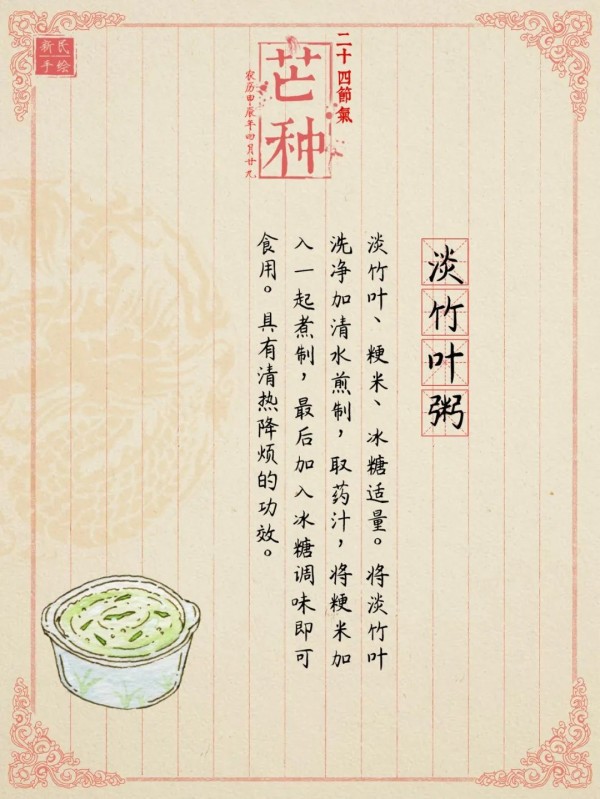 新民
手绘
二十四節氣
芒种
农历甲辰年四月廿九
淡竹叶粥
淡竹叶、粳米、冰糖适量。将淡竹叶
洗净加清水煎制，取药汁，将粳米加
入一起煮制，最后加入冰糖调味即可
食用。具有清热降烦的功效。